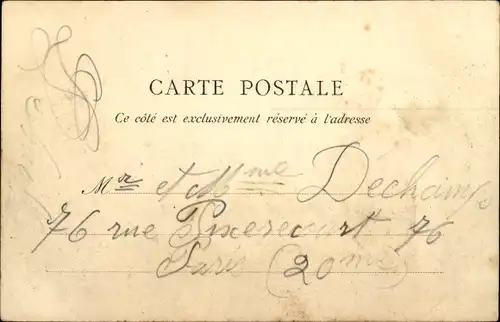 CARTE POSTALE
Ce côté est exclusivement réservé à l'adresse
Mr et Mme Dechamps
76 rue Pixerecourt 76
Paris (20me)